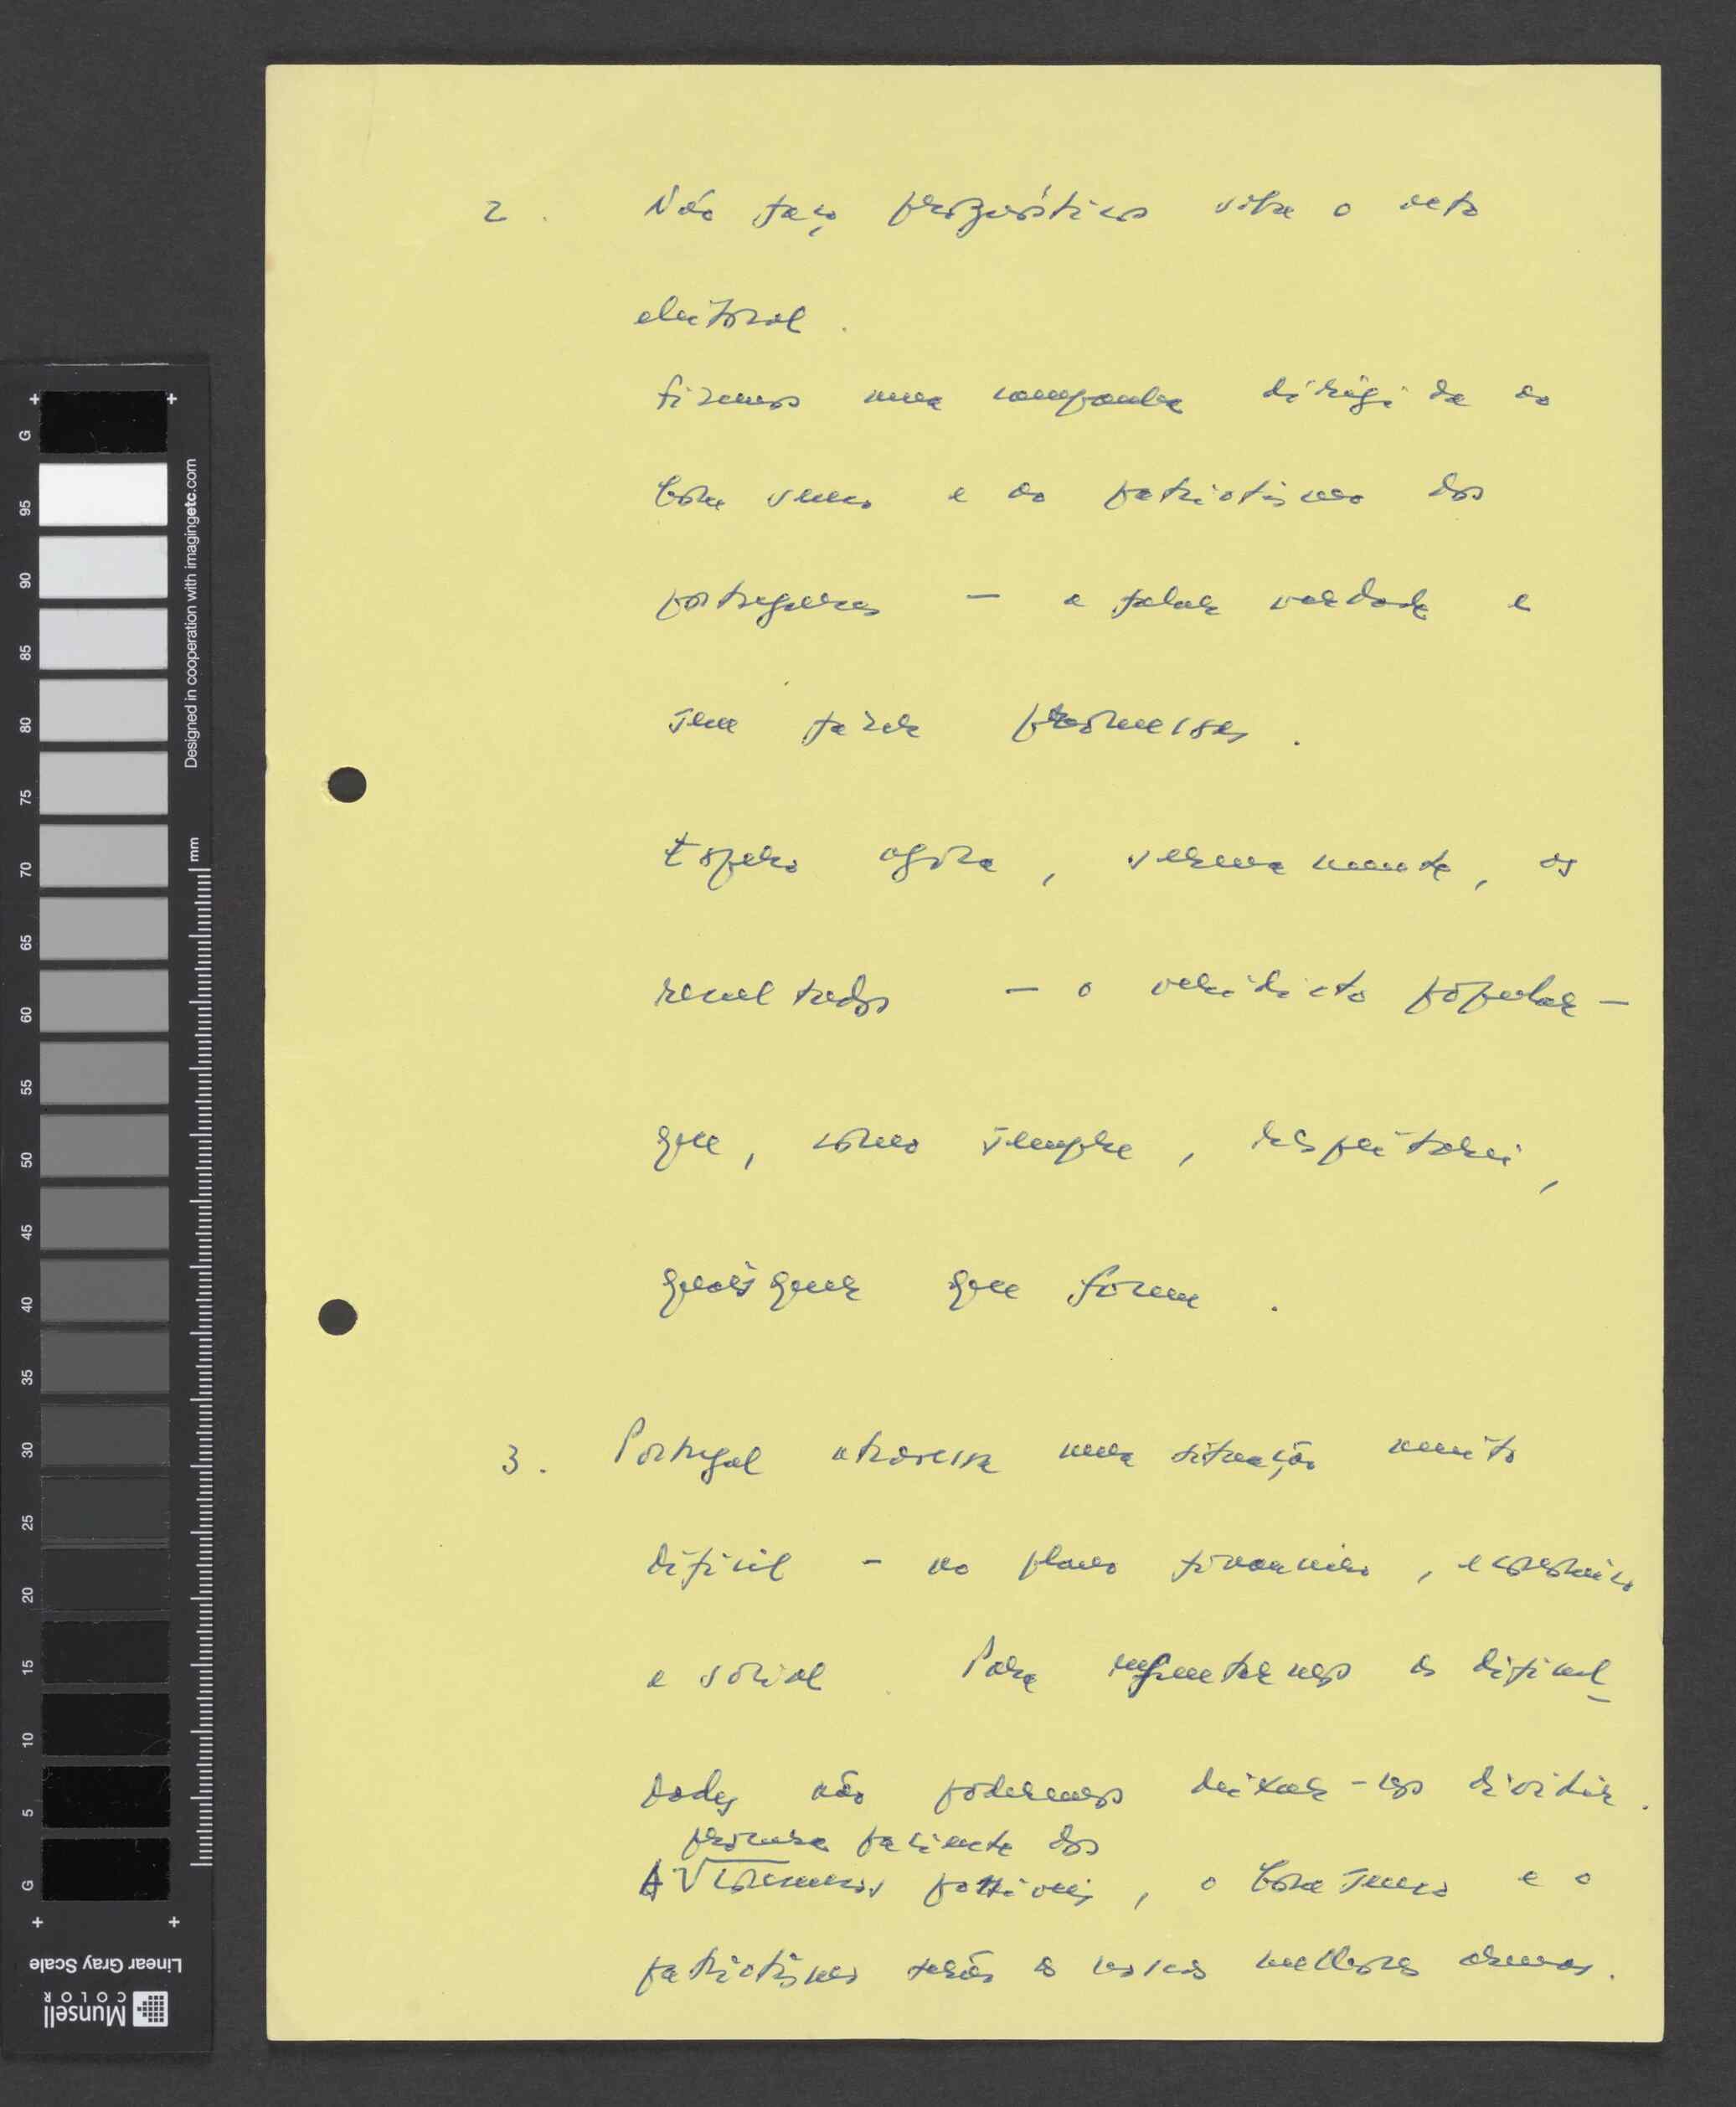 2. Não faço prognósticos sobre o acto
eleitoral.
Fizemos uma campanha dirigida ao
bom senso e ao patriotismo dos
portugueses — a falar verdade e
sem fazer promessas.
Espero agora, serenamente, os
resultados — o veridicto popular —
que, como sempre, respeitarei,
quaisquer que forem.
3. Portugal atravessa uma situação muito
difícil - no plano financeiro, económico
e social. Para enfrentarmos as dificul-
dades não poderemos deixar-nos dividir.
procura paciente dos
A consensos possíveis, o bom senso e o
patriotismo serão as nossas melhores armas.
G 95 90 85 80 75 70 65 60 55 50 45 40 35 30 25 20 15 10 5 G
Designed in cooperation with imagingetc.com
mm
Linear Gray Scale
Munsell
COLOR